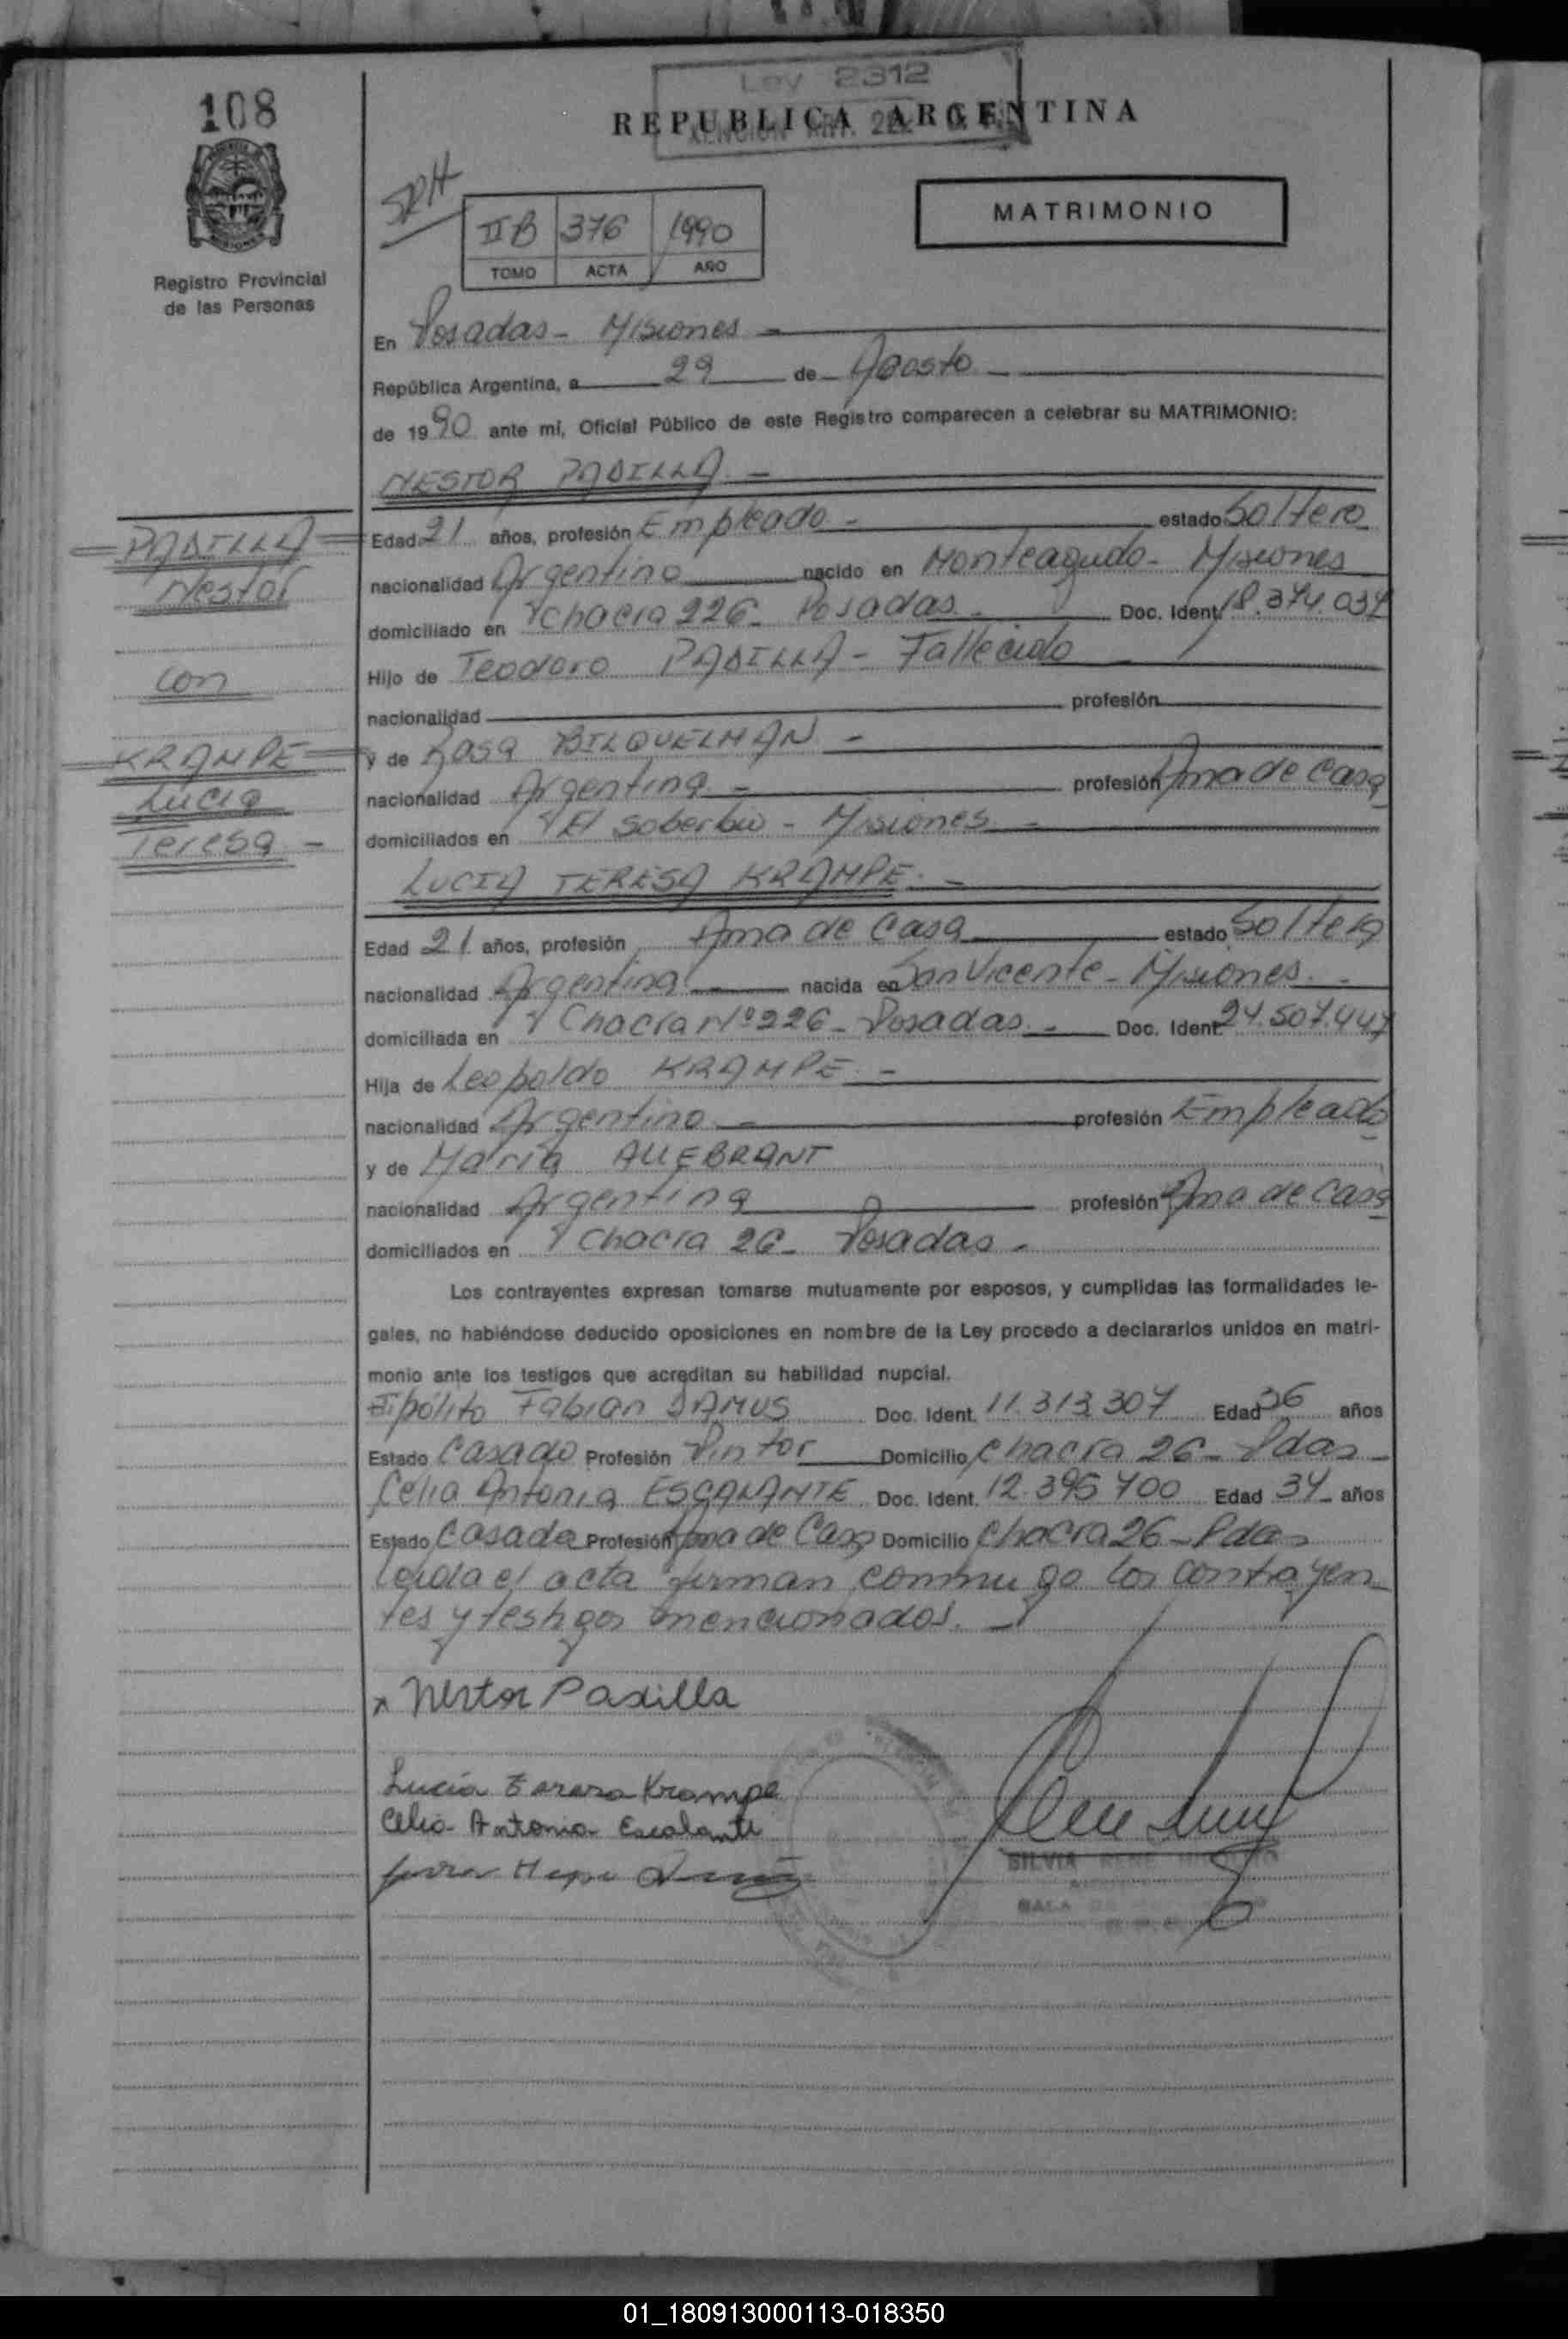 108
Ley 2312
REPUBLICA ARGENTINA
MATRIMONIO
II B 376 1990
TOMO ACTA AÑO
Registro Provincial
de las Personas
En Posadas - Misiones -
República Argentina, a 29 de Agosto
de 1990 ante mí, Oficial Público de este Registro comparecen a celebrar su MATRIMONIO:
NESTOR PADILLA. -
PADILLA
Nestor
con
KRAMPE
Lucia
Teresa -
Edad 21 años, profesión Empleado - estado Soltero
nacionalidad Argentino nacido en Monteagudo - Misiones
domiciliado en Chacra 226 - Posadas - Doc. Ident. 18.374.034
Hijo de Teodoro PADILLA - Fallecido
nacionalidad profesión
y de Rosa BILQUELMAN -
nacionalidad Argentina - profesión Ama de Casa
domiciliados en El Soberbio - Misiones -
LUCIA TERESA KRAMPE. -
Edad 21 años, profesión Ama de Casa estado Soltera
nacionalidad Argentina nacida en San Vicente - Misiones. -
domiciliada en Chacra Nº 226 - Posadas - Doc. Ident. 24.507.447
Hija de Leopoldo KRAMPE -
nacionalidad Argentino - profesión Empleado
y de María ALLEBRANT
nacionalidad Argentina profesión Ama de Casa
domiciliados en Chacra 26 - Posadas -
Los contrayentes expresan tomarse mutuamente por esposos, y cumplidas las formalidades le-
gales, no habiéndose deducido oposiciones en nombre de la Ley procedo a declararlos unidos en matri-
monio ante los testigos que acreditan su habilidad nupcial.
Fabian Doc. Ident. 11.313.307 Edad 36 años
Estado Casado Profesión Pintor Domicilio Chacra 26 - Pdas -
Celia Antonia ESCALANTE Doc. Ident. 12.396.400 Edad 34 años
Estado Casada Profesión Ama de Casa Domicilio Chacra 26 - Pdas
Leida el acta firman conmigo los contrayen
tes y testigos mencionados. -
x Nestor Padilla
Lucia Teresa Krampe
Celia Antonia Escalante
SILVIA RENE
01_180913000113-018350